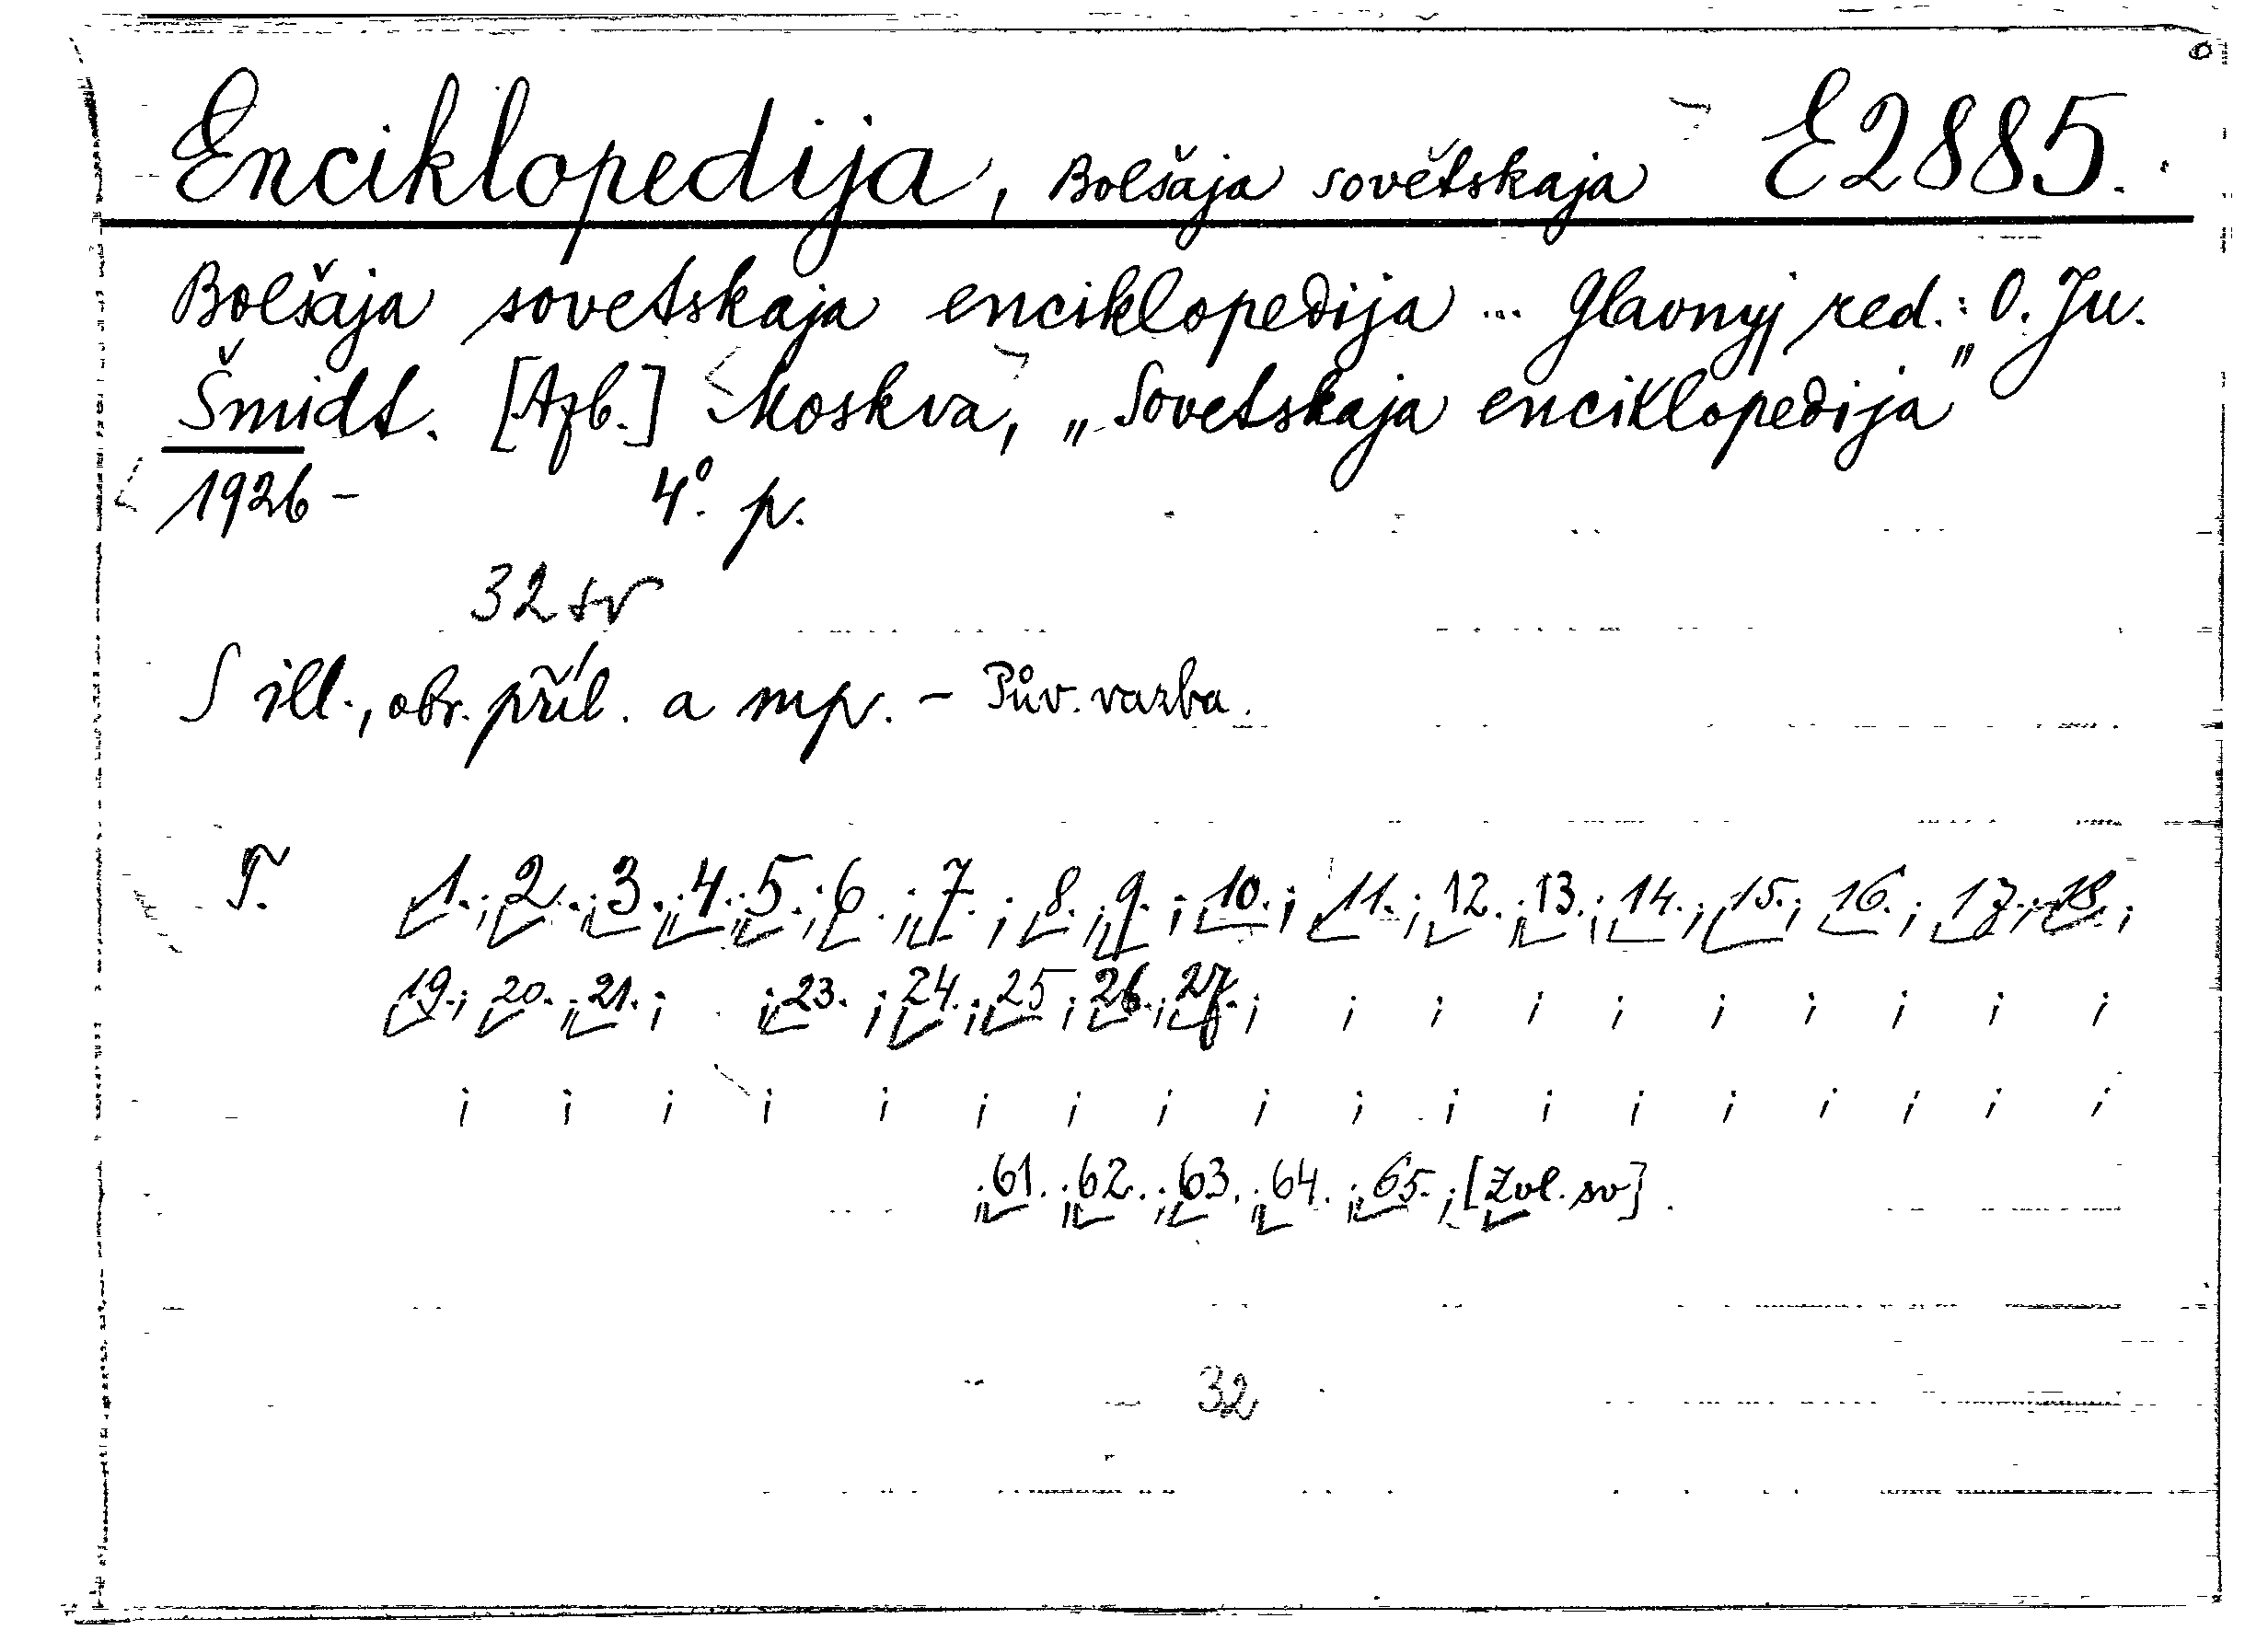 Enciklopedija, Bolšaja sovětskaja E2885.
Bolšaja sovetskaja enciklopedija ... Glavnyj red.: O. Ju.
Šmidt. [Azb.] Moskva, „Sovetskaja enciklopedija"
1926 - 4°. p.
32 sv
S ill., obr. příl. a mp. - Pův. vazba.
T. 1.; 2.; 3.; 4.; 5.; 6.; 7.; 8.; 9.; 10.; 11.; 12.; 13.; 14.; 15.; 16.; 17.; 18.;
19.; 20.; 21.; ; 23.; 24.; 25; 26.; 27.; ; ; ; ; ; ; ; ; ;
; ; ; ; ; ; ; ; ; ; ; ; ; ; ; ; ; ;
; 61.; 62.; 63.; 64.; 65.; [Zvl. sv].
32